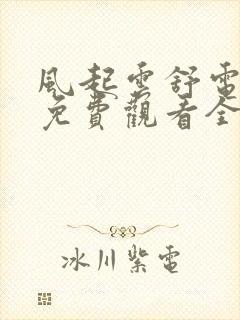 風起雲舒電
免費觀看全
冰川紫電